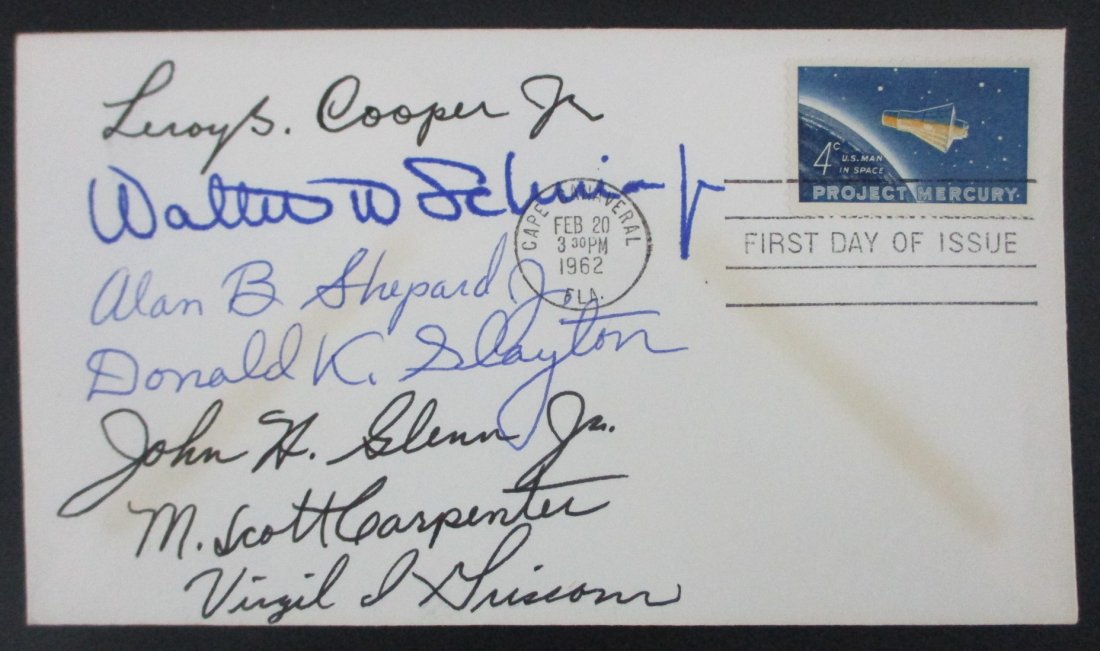 Leroy G. Cooper Jr
Walter M Schirra Jr
Alan B Shepard Jr
Donald K. Slayton
John H. Glenn Jr.
M. Scott Carpenter
Virgil I Grissom
CAPE CANAVERAL
FEB 20
3 30 PM
1962
FLA.
4c U.S. MAN
IN SPACE
PROJECT MERCURY
FIRST DAY OF ISSUE